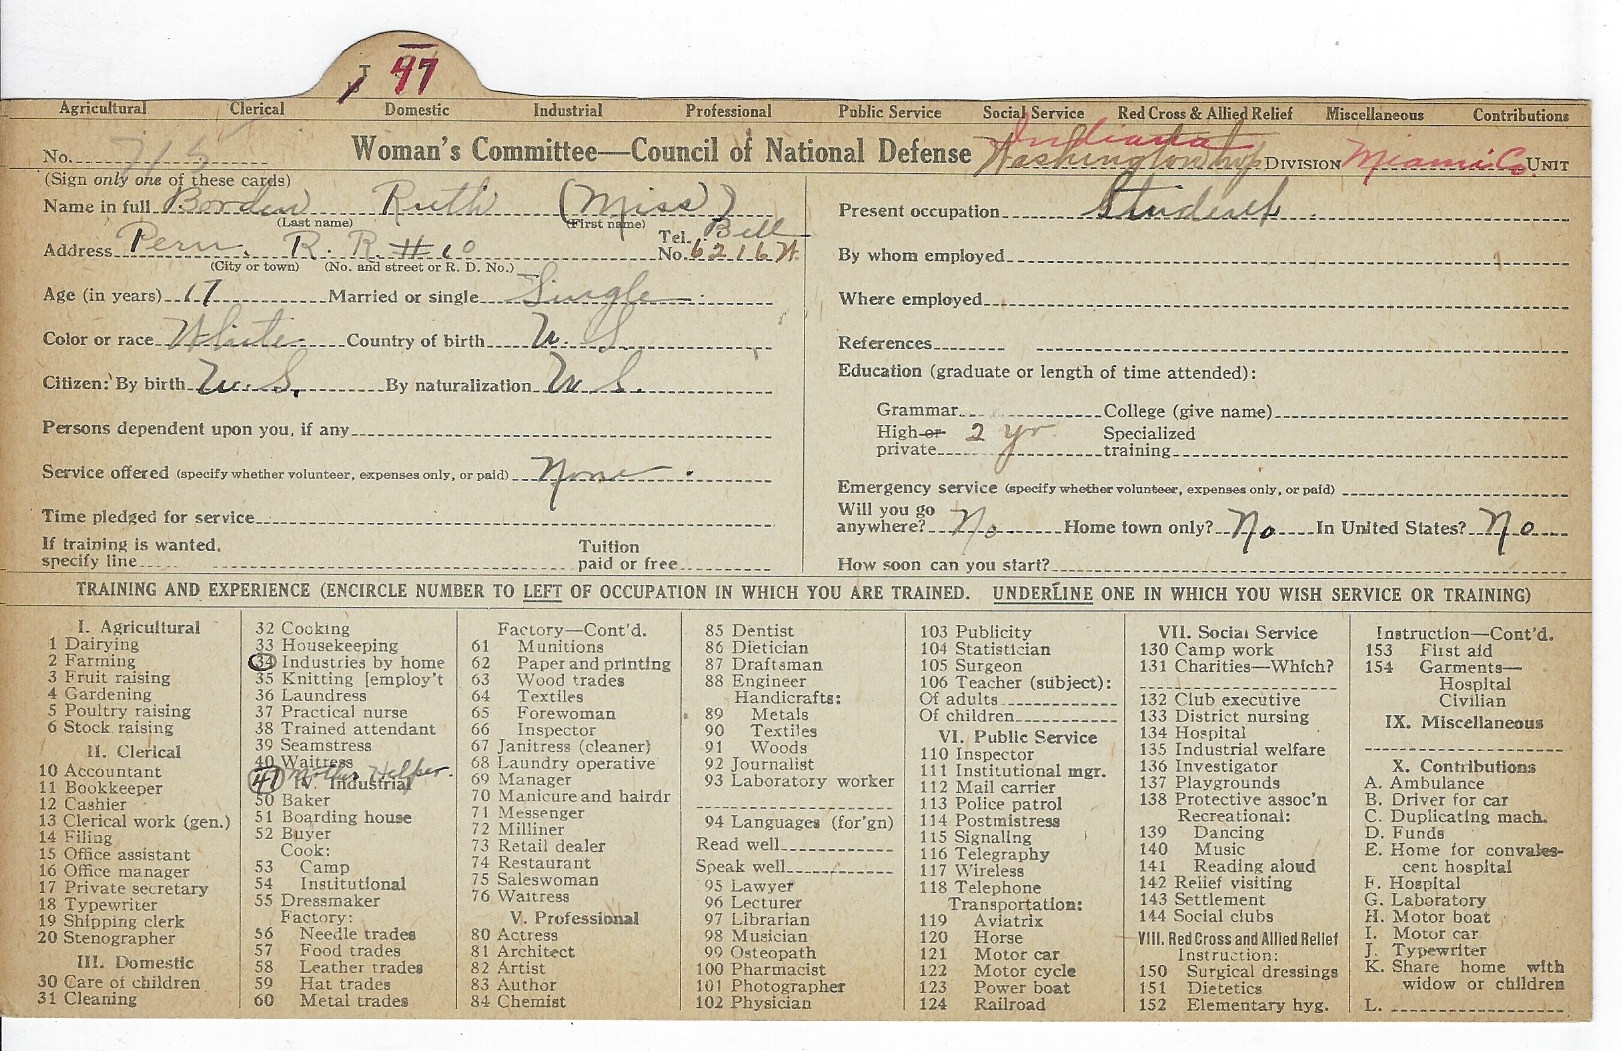 T 47
Agricultural Clerical Domestic Industrial Professional Public Service Social Service Red Cross & Allied Relief Miscellaneous Contributions
No. 715 Woman's Committee—Council of National Defense Indiana Washington twp DIVISION Miami Co. UNIT
(Sign only one of these cards)
Name in full Borden Ruth (Miss)
(Last name) (First name)
Address Peru, R. R. # 10 Tel. No. Bell 6216
(City or town) (No. and street or R. D. No.)
Age (in years) 17 Married or single Single
Color or race White Country of birth U. S.
Citizen: By birth U. S. By naturalization U S.
Persons dependent upon you, if any
Service offered (specify whether volunteer, expenses only, or paid) None.
Time pledged for service
If training is wanted, specify line Tuition paid or free
Present occupation Student
By whom employed
Where employed
References
Education (graduate or length of time attended):
Grammar College (give name)
High or private 2 yr Specialized training
Emergency service (specify whether volunteer, expenses only, or paid)
Will you go anywhere? No Home town only? No In United States? No
How soon can you start?
TRAINING AND EXPERIENCE (ENCIRCLE NUMBER TO LEFT OF OCCUPATION IN WHICH YOU ARE TRAINED. UNDERLINE ONE IN WHICH YOU WISH SERVICE OR TRAINING)
I. Agricultural
1 Dairying
2 Farming
3 Fruit raising
4 Gardening
5 Poultry raising
6 Stock raising
II. Clerical
10 Accountant
11 Bookkeeper
12 Cashier
13 Clerical work (gen.)
14 Filing
15 Office assistant
16 Office manager
17 Private secretary
18 Typewriter
19 Shipping clerk
20 Stenographer
III. Domestic
30 Care of children
31 Cleaning
32 Cooking
33 Housekeeping
34 Industries by home
35 Knitting [employ't
36 Laundress
37 Practical nurse
38 Trained attendant
39 Seamstress
40 Waitress
41 Mother Helper.
IV. Industrial
50 Baker
51 Boarding house
52 Buyer
Cook:
53 Camp
54 Institutional
55 Dressmaker
Factory:
56 Needle trades
57 Food trades
58 Leather trades
59 Hat trades
60 Metal trades
Factory—Cont'd.
61 Munitions
62 Paper and printing
63 Wood trades
64 Textiles
65 Forewoman
66 Inspector
67 Janitress (cleaner)
68 Laundry operative
69 Manager
70 Manicure and hairdr
71 Messenger
72 Milliner
73 Retail dealer
74 Restaurant
75 Saleswoman
76 Waitress
V. Professional
80 Actress
81 Architect
82 Artist
83 Author
84 Chemist
85 Dentist
86 Dietician
87 Draftsman
88 Engineer
Handicrafts:
89 Metals
90 Textiles
91 Woods
92 Journalist
93 Laboratory worker
94 Languages (for'gn)
Read well
Speak well
95 Lawyer
96 Lecturer
97 Librarian
98 Musician
99 Osteopath
100 Pharmacist
101 Photographer
102 Physician
103 Publicity
104 Statistician
105 Surgeon
106 Teacher (subject):
Of adults
Of children
VI. Public Service
110 Inspector
111 Institutional mgr.
112 Mail carrier
113 Police patrol
114 Postmistress
115 Signaling
116 Telegraphy
117 Wireless
118 Telephone
Transportation:
119 Aviatrix
120 Horse
121 Motor car
122 Motor cycle
123 Power boat
124 Railroad
VII. Social Service
130 Camp work
131 Charities—Which?
132 Club executive
133 District nursing
134 Hospital
135 Industrial welfare
136 Investigator
137 Playgrounds
138 Protective assoc'n
Recreational:
139 Dancing
140 Music
141 Reading aloud
142 Relief visiting
143 Settlement
144 Social clubs
VIII. Red Cross and Allied Relief
Instruction:
150 Surgical dressings
151 Dietetics
152 Elementary hyg.
Instruction—Cont'd.
153 First aid
154 Garments—
Hospital
Civilian
IX. Miscellaneous
X. Contributions
A. Ambulance
B. Driver for car
C. Duplicating mach.
D. Funds
E. Home for convales-
cent hospital
F. Hospital
G. Laboratory
H. Motor boat
I. Motor car
J. Typewriter
K. Share home with
widow or children
L.